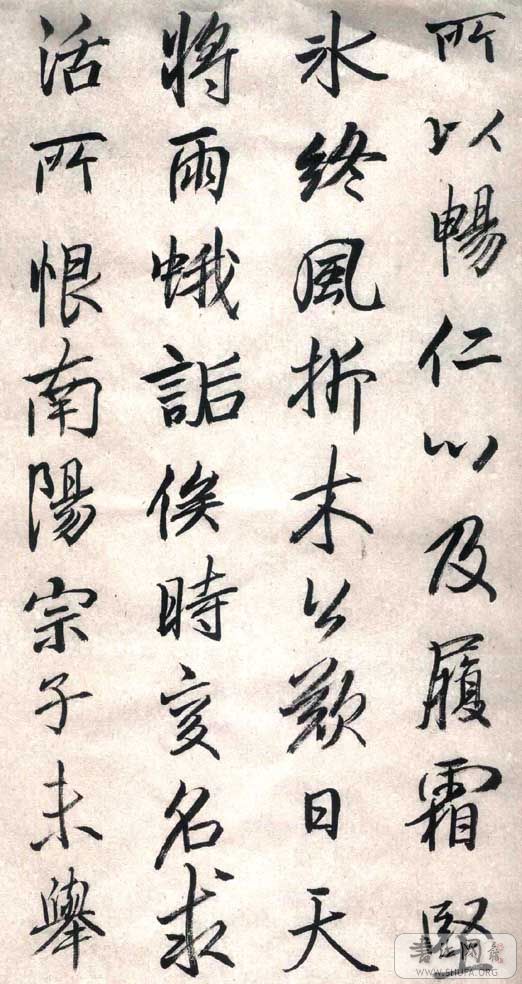 所以暢仁以及履霜堅
氷終風折木公歎曰天
將雨蛾詬俟時変名求
活所恨南陽宗子未舉
书法网
WWW.SHUFA.ORG